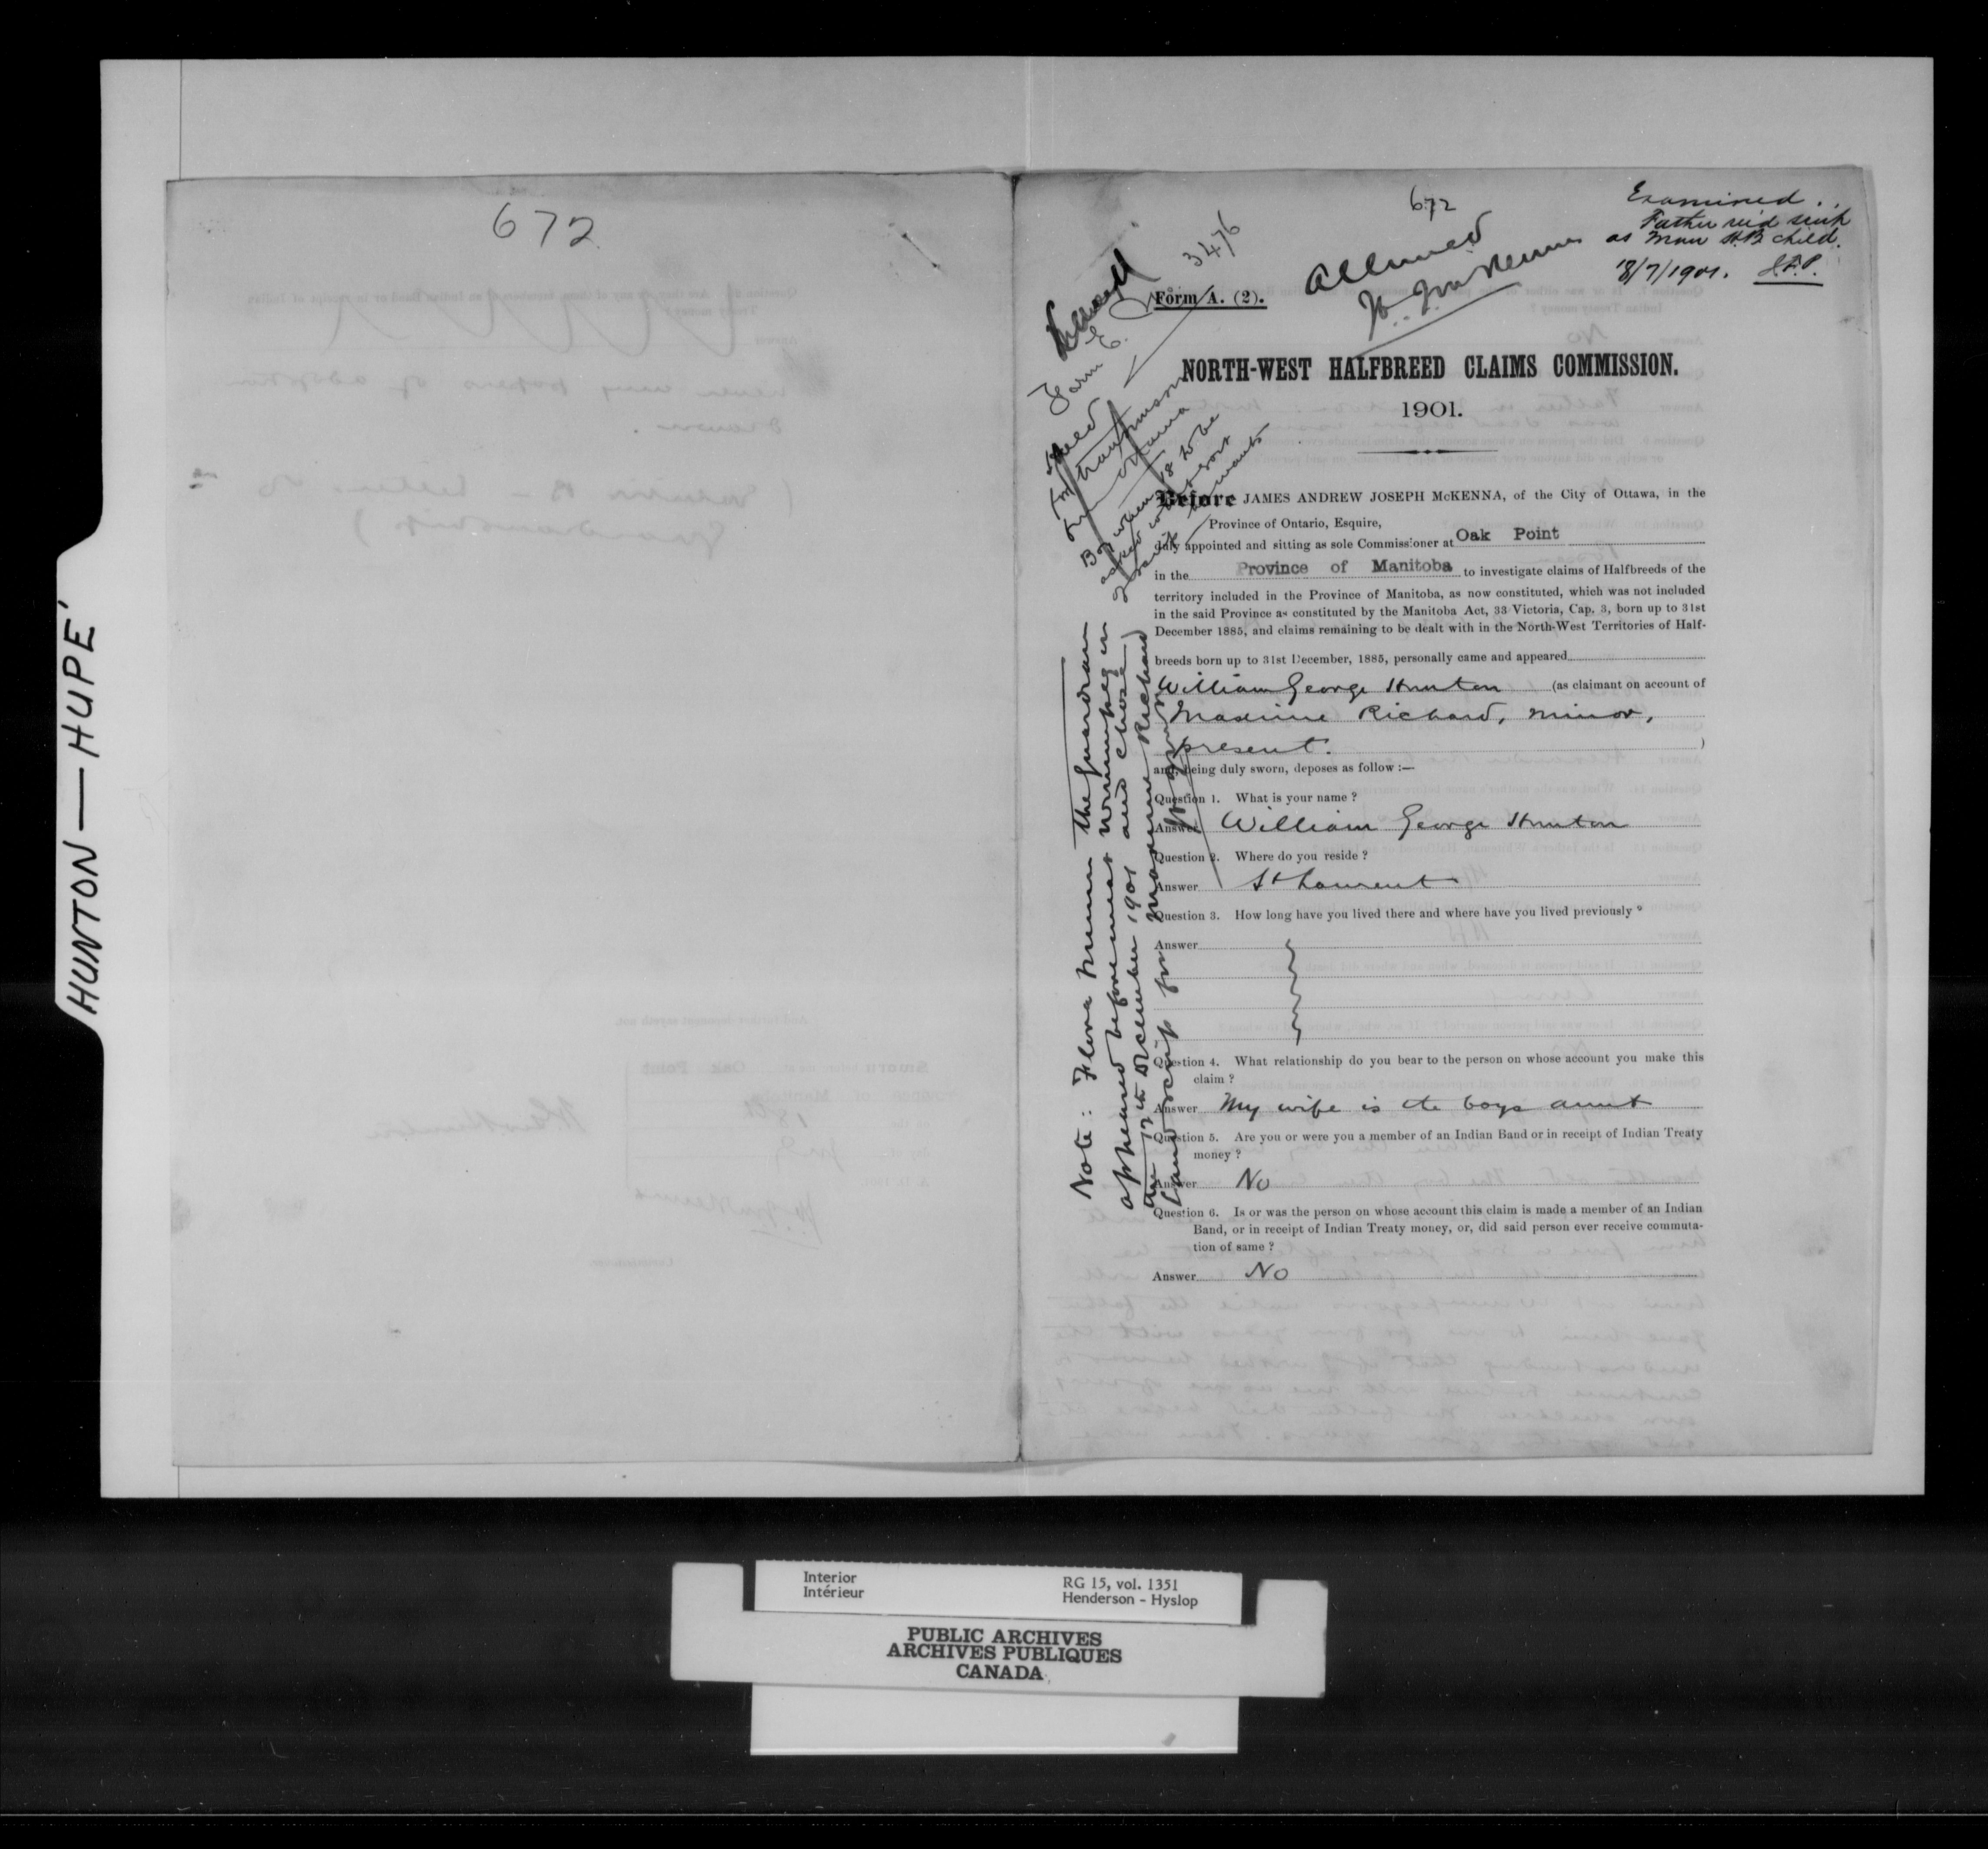 HUNTON — HUPE'
672
672
3476
Examined.
Father rec'd scrip
as Man H.B. child.
18/7/1901. J.F.P.
Allowed
Form E.
Form A. (2).
NORTH-WEST HALFBREED CLAIMS COMMISSION.
1901.
Boy when 18 to be
asked what sort
scrip he wants
Before JAMES ANDREW JOSEPH McKENNA, of the City of Ottawa, in the
Province of Ontario, Esquire,
duly appointed and sitting as sole Commissioner at Oak Point
in the Province of Manitoba to investigate claims of Halfbreeds of the
territory included in the Province of Manitoba, as now constituted, which was not included
in the said Province as constituted by the Manitoba Act, 33 Victoria, Cap. 3, born up to 31st
December 1885, and claims remaining to be dealt with in the North-West Territories of Half-
breeds born up to 31st December, 1885, personally came and appeared
William George Hunton (as claimant on account of
Maxime Richard, minor,
present. )
and, being duly sworn, deposes as follow :—
Question 1. What is your name ?
Answer William George Hunton
Question 2. Where do you reside ?
Answer St Laurent
Question 3. How long have you lived there and where have you lived previously ?
Answer
Question 4. What relationship do you bear to the person on whose account you make this
claim ?
Answer My wife is the boys aunt
Question 5. Are you or were you a member of an Indian Band or in receipt of Indian Treaty
money ?
Answer No
Question 6. Is or was the person on whose account this claim is made a member of an Indian
Band, or in receipt of Indian Treaty money, or, did said person ever receive commuta-
tion of same ?
Answer No
Note : Flora the guardian
appeared before me at Winnipeg on
the 12th December 1901 and chose
land scrip for Maxime Richard
Interior
Intérieur
RG 15, vol. 1351
Henderson - Hyslop
PUBLIC ARCHIVES
ARCHIVES PUBLIQUES
CANADA